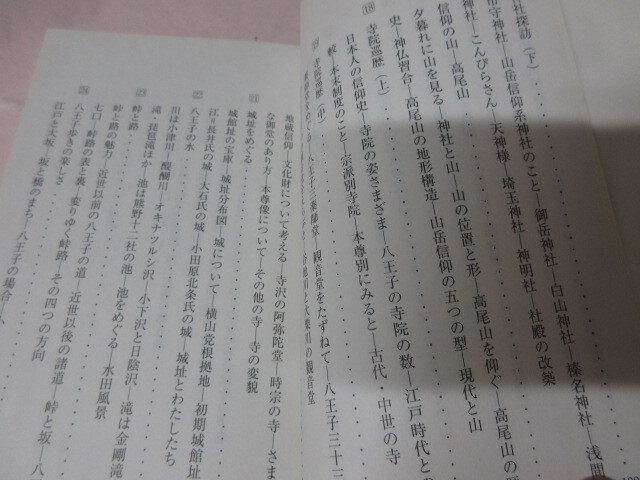 社探訪（下）
市守神社―山岳信仰系神社のこと―御岳神社―白山神社―榛名神社―浅間
神社―こんぴらさん―天神様―埼玉神社―神明社―社殿の改築
信仰の山―高尾山
夕暮れに山を見る―神社と山―山の位置と形―高尾山を仰ぐ―高尾山の
史―神仏習合―高尾山の地形構造―山岳信仰の五つの型―現代と山
18 寺院巡歴（上）
日本人の信仰史―寺院の姿さまざま―八王子の寺院の数―江戸時代との
較―本末制度のこと―宗派別寺院―本尊別にみると―古代・中世の寺
19 寺院巡歴（中）
八王子十二薬師堂―観音堂をたずねて―八王子三十三
川の観音堂
地蔵信仰―文化財について考える―寺沢の阿弥陀堂―時宗の寺―さま
な御堂のあり方―本尊像について―その他の寺―寺の変貌
21 城址をめぐる
城館址の宝庫―城址分布図―城について―横山党根拠地―初期城館址
江と長井氏の城―大石氏の城―小田原北条氏の城―城址とわたしたち
22 八王子の水
川は小津川・醍醐川―オキナツルシ沢、小下沢と日陰沢―滝は金剛滝
滝・琵琶滝ほか―池は熊野十二社の池―池をめぐる―水田風景
峠と路
峠と路の魅力―近世以前の八王子の道―近世以後の諸道―峠と坂―八
七口―峠路の表と裏―変りゆく峠路―その四つの方向
24 八王子歩きの楽しさ
江戸と大坂―坂と橋のまち―八王子の場合―